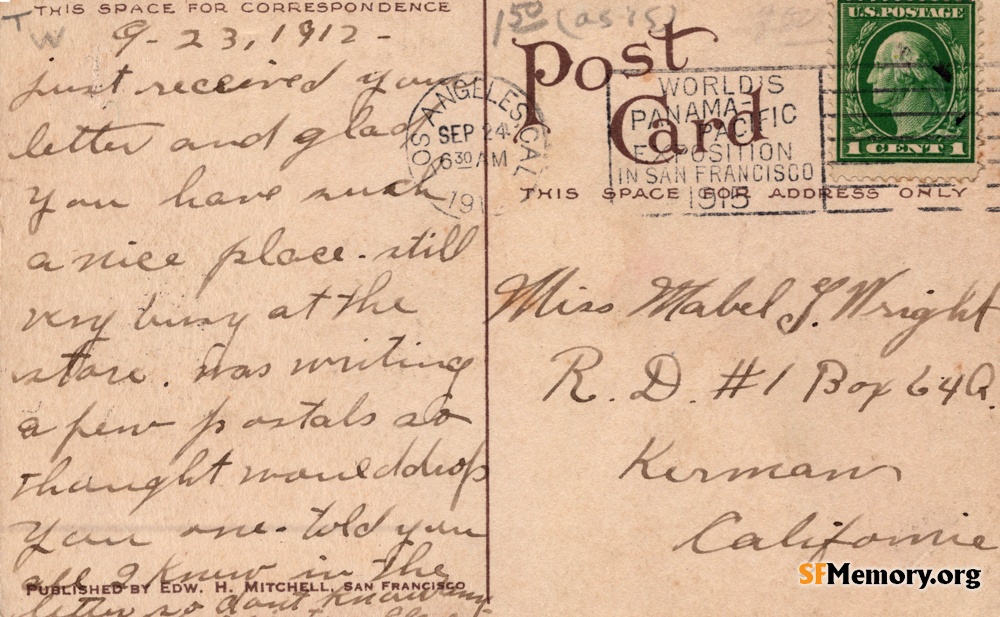 THIS SPACE FOR CORRESPONDENCE
T
W
9-23, 1912-
just received your
letter and glad
you have such
a nice place. still
very busy at the
store. was writing
a few postals so
thought would drop
you one. told you
all I knew in the
PUBLISHED BY EDW. H. MITCHELL, SAN FRANCISCO
letter so dont know any
150 (as is)
Post
Card
LOS ANGELES, CAL
SEP 24
630 AM
191
WORLD'S
PANAMA-
PACIFIC
EXPOSITION
IN SAN FRANCISCO
1915
U.S. POSTAGE
1 CENT 1
THIS SPACE FOR ADDRESS ONLY
Miss Mabel J. Wright
R. D. #1 Box 64Q.
Kerman
California
SFMemory.org